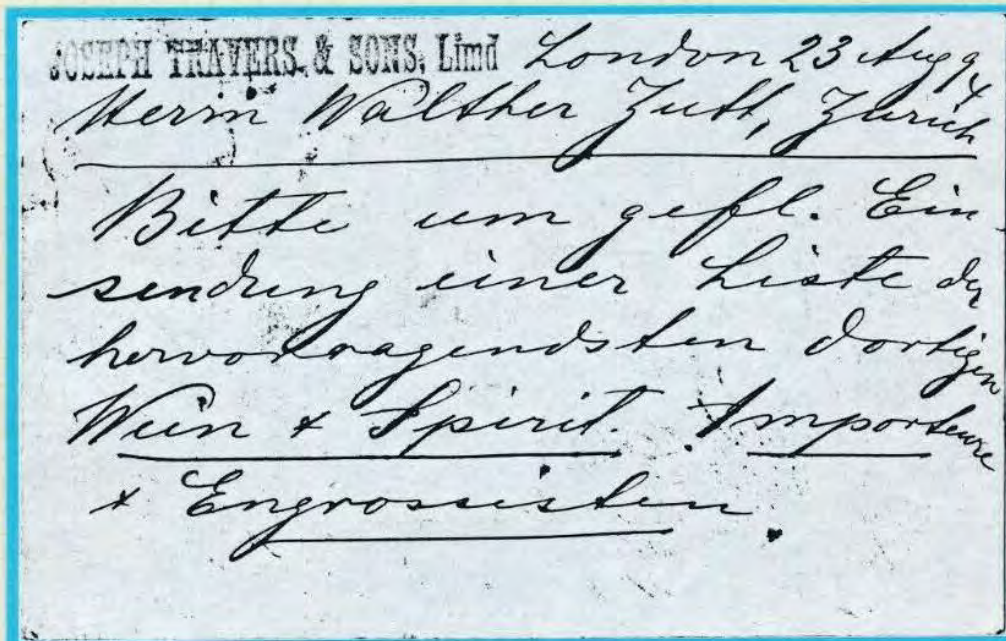 JOSEPH TRAVERS & SONS, Limd London 23 Aug 94
Herrn Walther Zutt, Zürich
Bitte um gefl. Ein-
sendung einer Liste der
hervorragendsten dortigen
Wein & Spirit. Importeure
& Engrossisten.